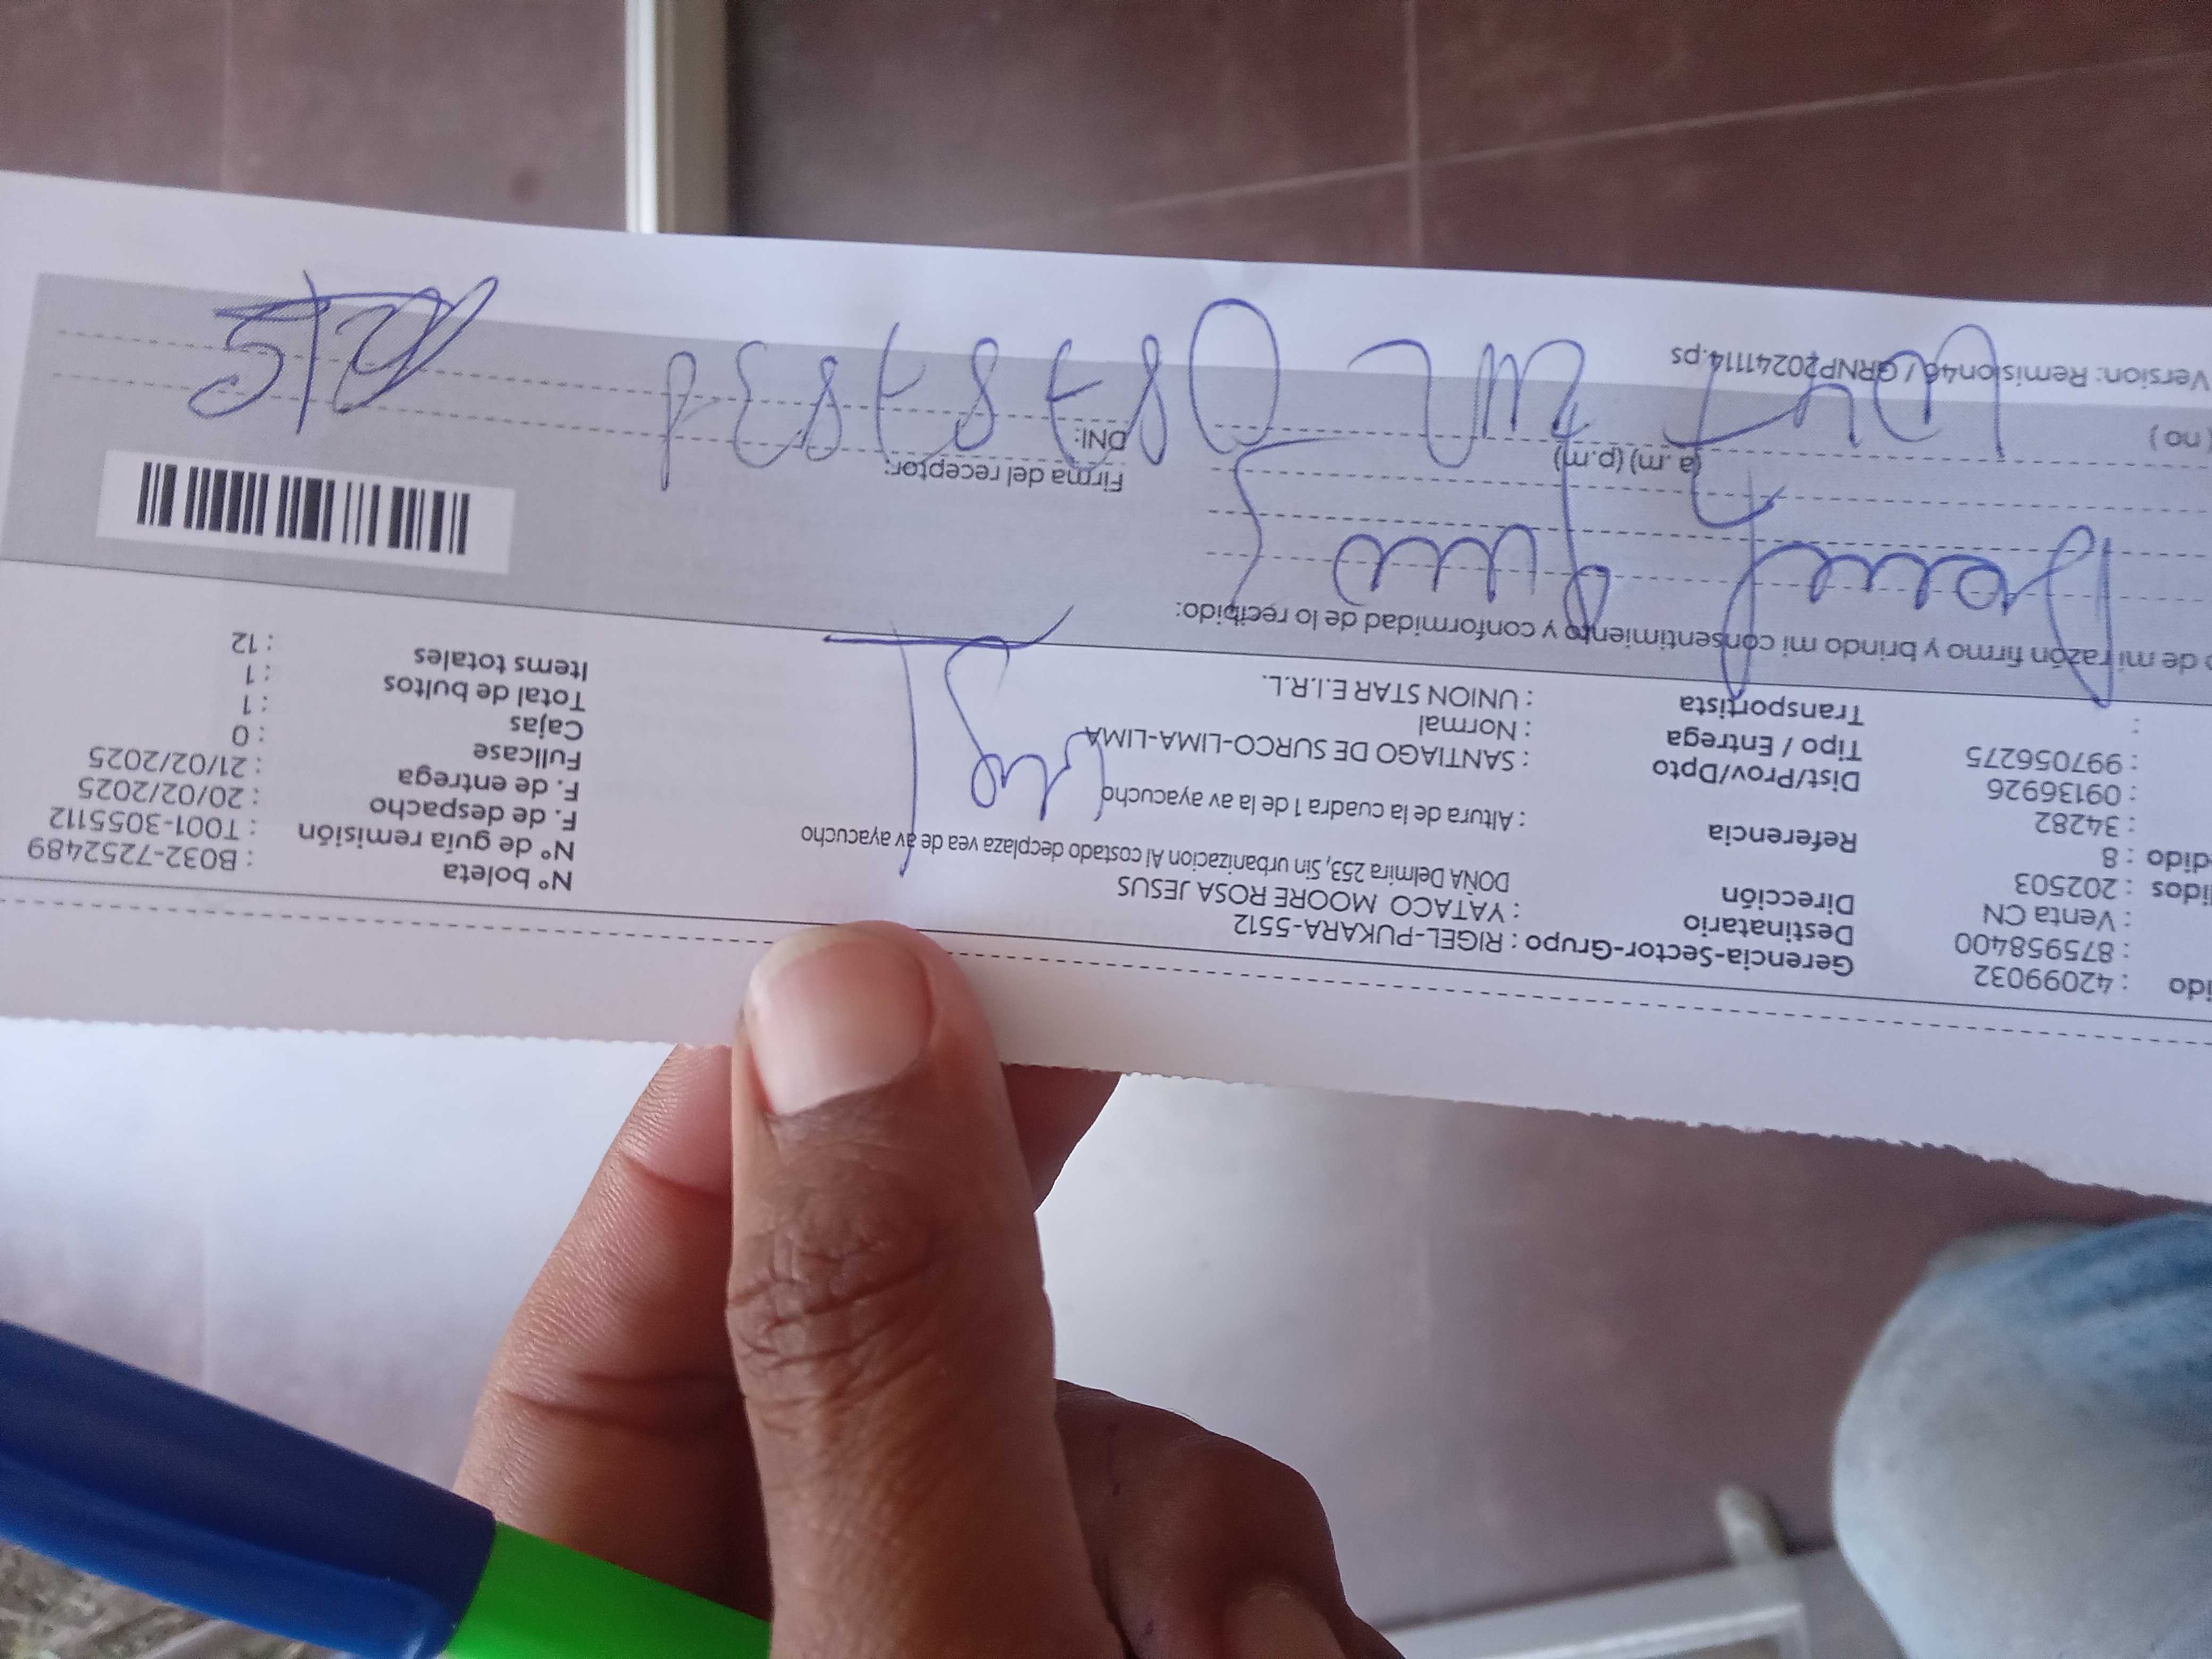 ido : 42099032
: 875958400
: Venta CN
idos : 202503
dido : 8
: 34282
: 09136926
: 997056275
:
Gerencia-Sector-Grupo : RIGEL-PUKARA-5512
Destinatario : YATACO MOORE ROSA JESUS
Dirección DOÑA Delmira 253, Sin urbanizacion Al costado decplaza vea de av ayacucho
Referencia : Altura de la cuadra 1 de la av ayacucho
Dist/Prov/Dpto : SANTIAGO DE SURCO-LIMA-LIMA
Tipo / Entrega : Normal
Transportista : UNION STAR E.I.R.L.
N° boleta : B032-7252489
N° de guía remisión : T001-3055112
F. de despacho : 20/02/2025
F. de entrega : 21/02/2025
Fullcase : 0
Cajas : 1
Total de bultos : 1
Items totales : 12
de mi razón firmo y brindo mi consentimiento y conformidad de lo recibido:
Firma del receptor:
(no) (a.m) (p.m) DNI:
Version: Remision46 / GRNP20241114.ps